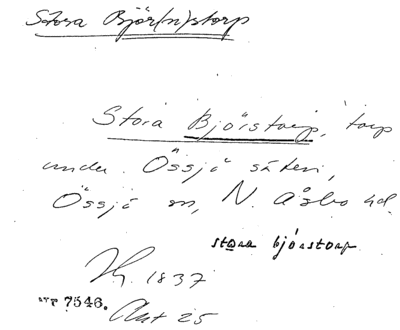 Stora Björ(n)storp
Stora Björstorp, torp
under Össjö säteri,
Össjö sn, N. Åsbo hd.
stωra bjö́rstorp
Hf. 1837
7546. Akt 25